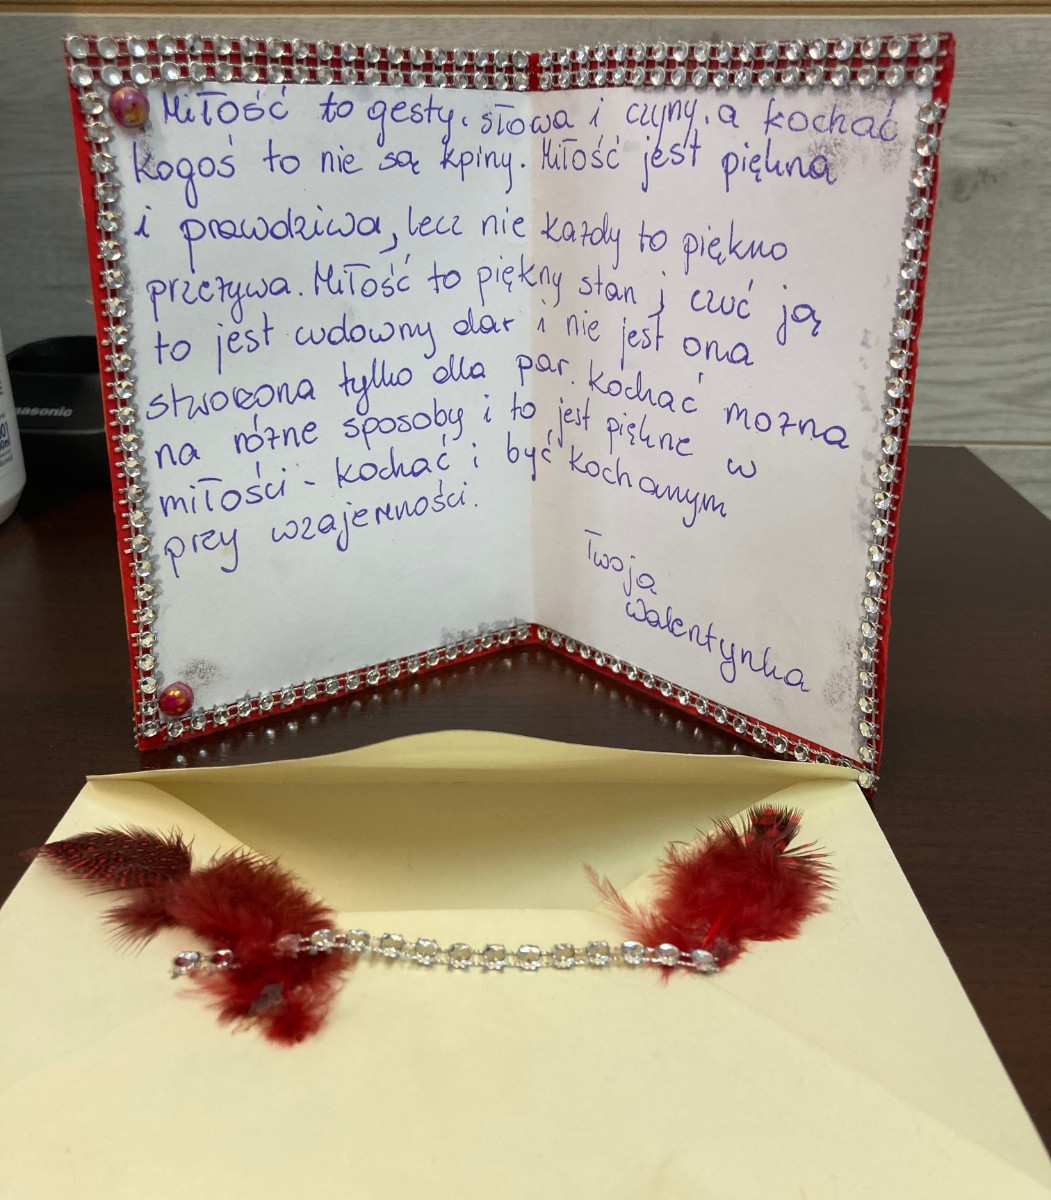 Miłość to gesty. słowa i czyny. a kochać
kogoś to nie są kpiny. Miłość jest piękna
i prawdziwa, lecz nie każdy to piękno
przeżywa. Miłość to piękny stan j czuć ją
to jest cudowny dar i nie jest ona
stworzona tylko dla par. Kochać można
na różne sposoby i to jest piękne w
miłości - kochać i być kochanym
przy wzajemności.
Twoja
Walentynka
Panasonic